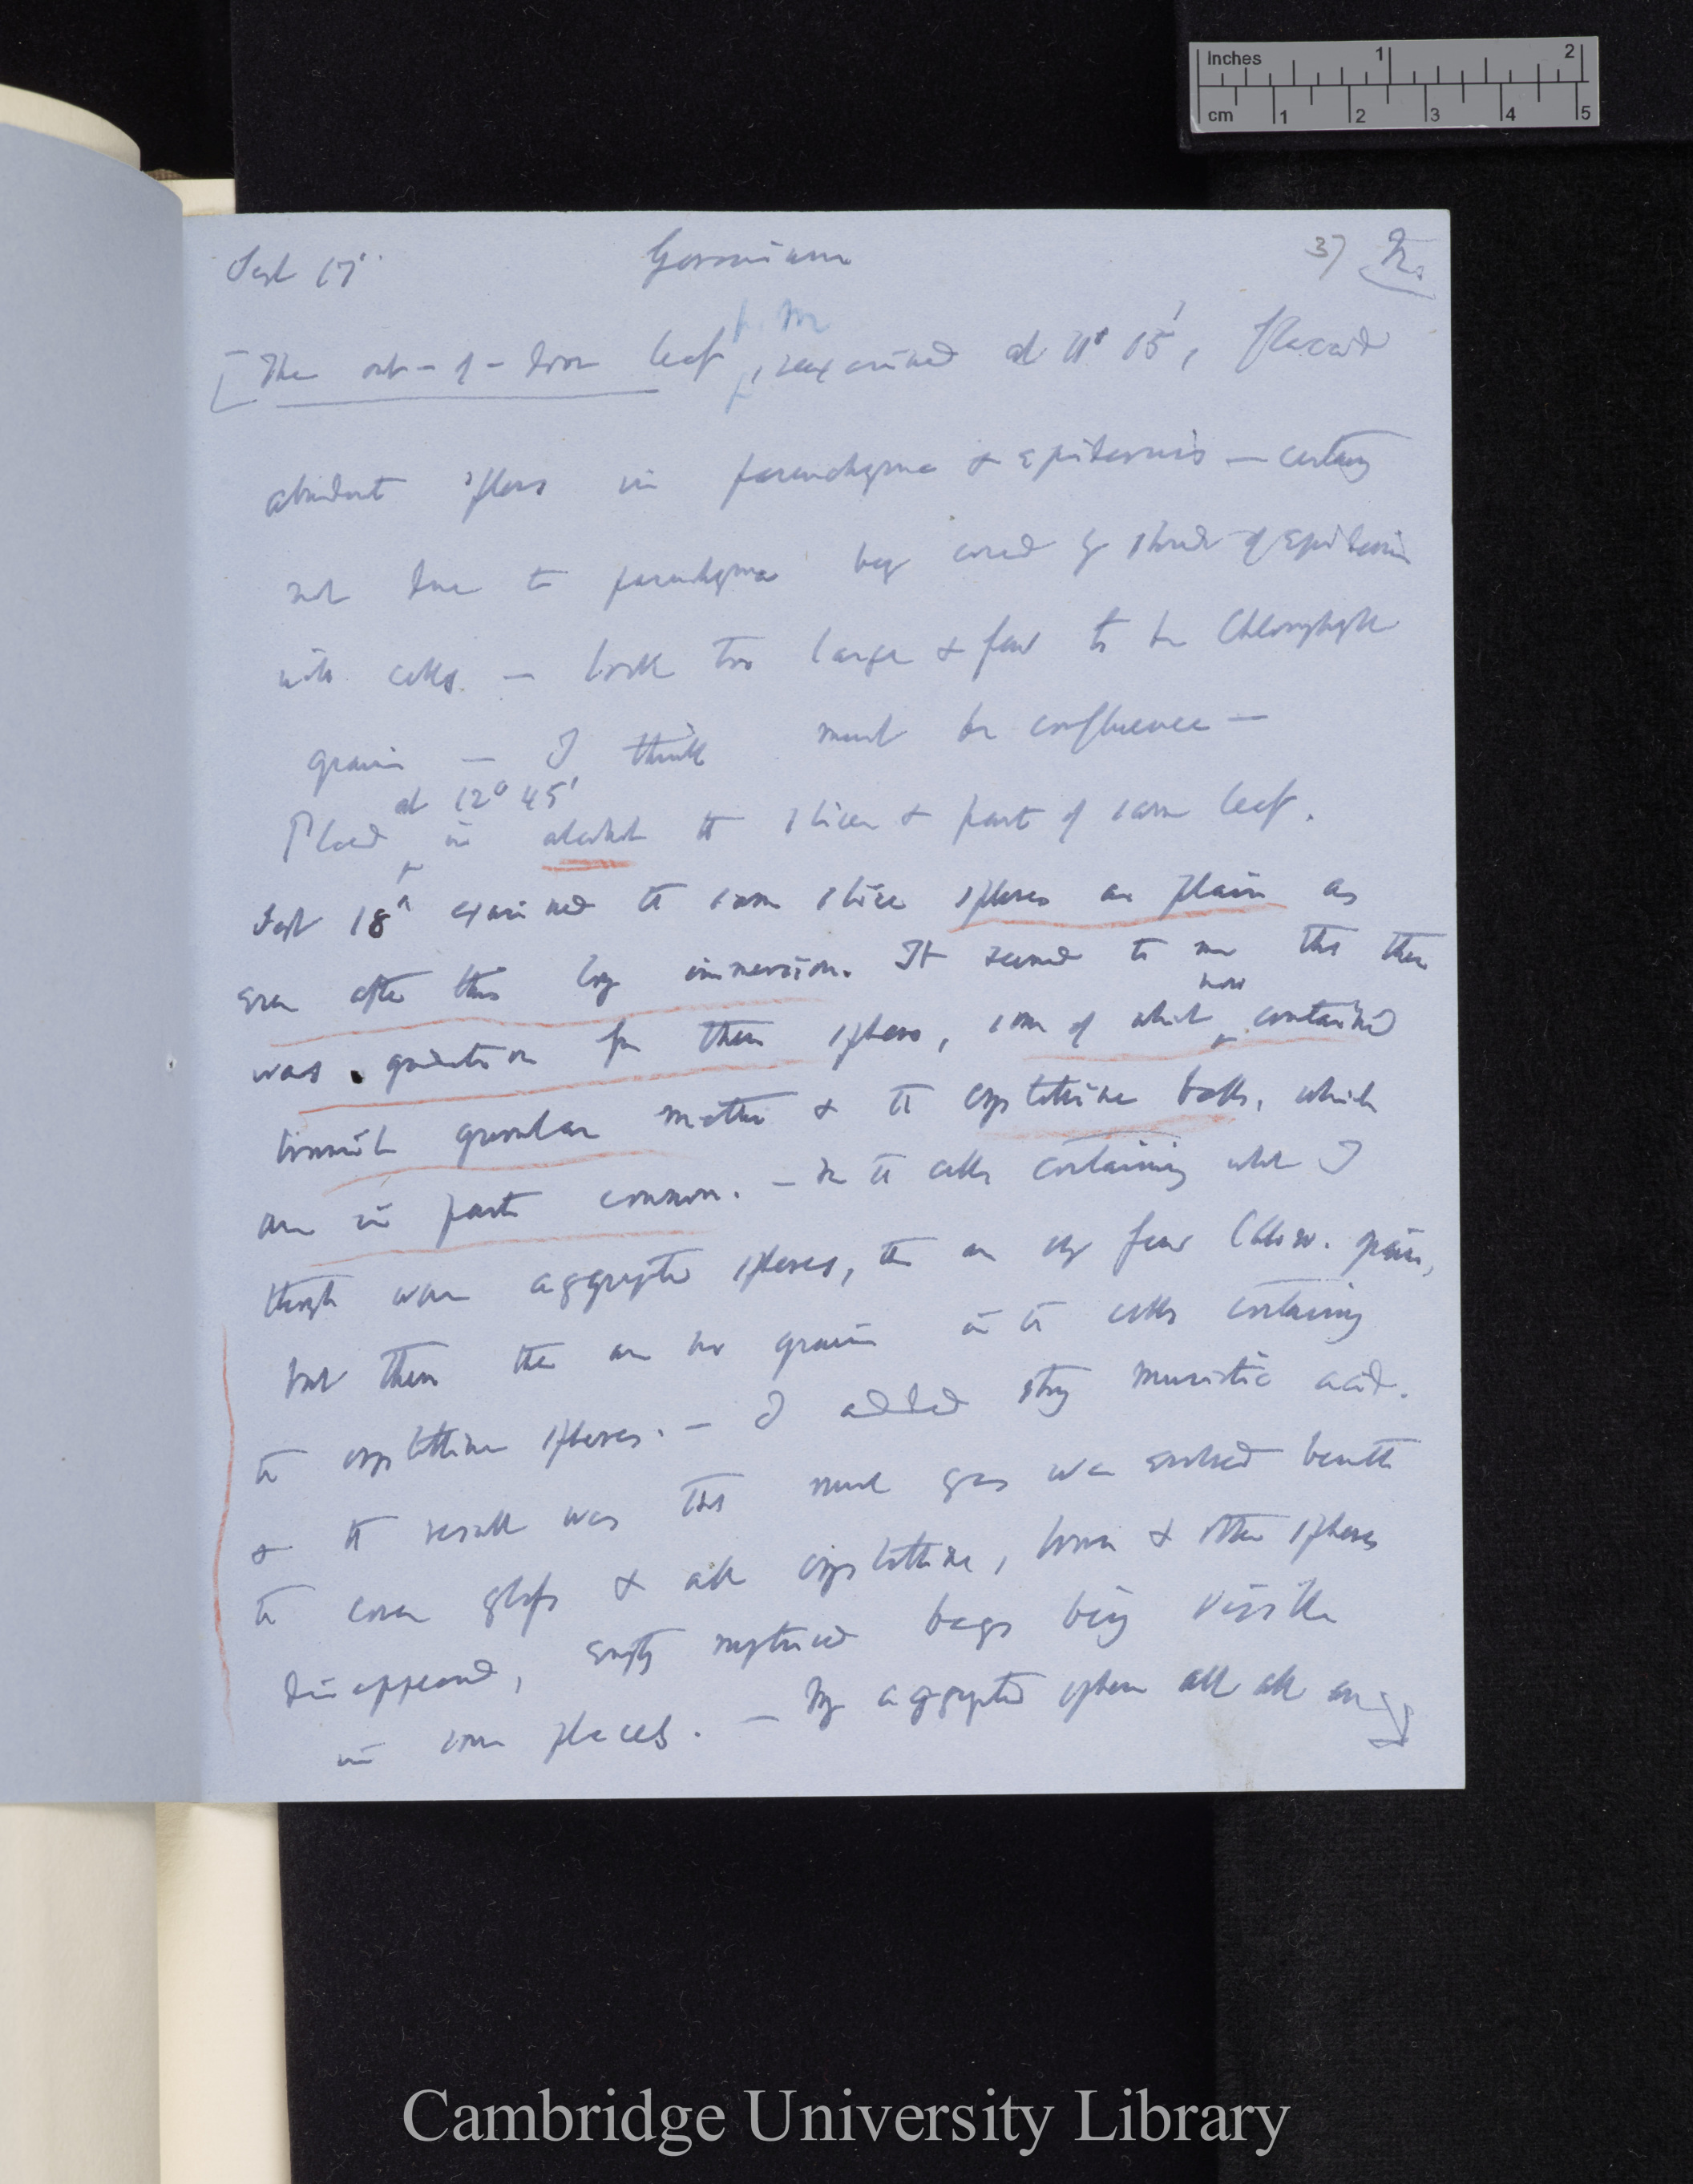 Inches 1 2
cm 1 2 3 4 5
Sept 17' Geranium 37
[The out-of-door leaf, reexamined at 11° 15', placed
abundant spheres in parenchyma & epidermis — certainly
not due to parenchyma being covered by shreds of Epidermis
with cells. — look too large & few to be Chlorophyll
grains — I think must be confluence —
at 12° 45'
Placed in alcohol the slices & part of same leaf.
Sept 18th examined the same slice spheres are plain as
even after this long immersion. It seemed to me that there
now
was gradation from these spheres, some of which contained
brownish granular matter & the crystalline balls, which
are in parts common. — In the cells containing what I
thought were aggregated spheres, there are very few Chloro. grains,
but then there are no grains in the cells containing
the crystalline spheres. — I added strong muriatic acid.
& the result was that much gas was evolved beneath
the cover glass & all crystalline, brown & other spheres
disappeared, empty ruptured bags being visible
in some places. — My aggregated spheres all all are
Cambridge University Library